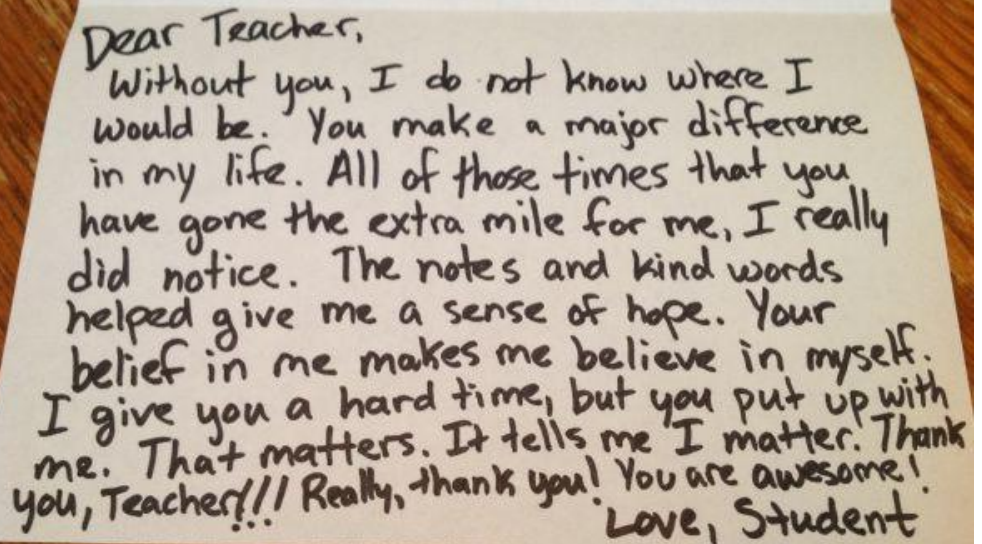 Dear Teacher,
Without you, I do not know where I
would be. You make a major difference
in my life. All of those times that you
have gone the extra mile for me, I really
did notice. The notes and kind words
helped give me a sense of hope. Your
belief in me makes me believe in myself.
I give you a hard time, but you put up with
me. That matters. It tells me I matter. Thank
you, Teacher!!! Really, thank you! You are awesome!
Love, Student